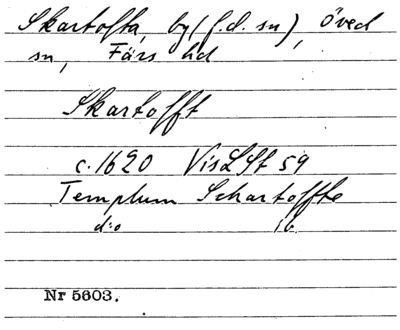 Skartofta, by (f.d. sn), Öved
sn, Färs hd
Skartofft
c. 1620 VisLSt 59
Templum Schartoffte
d:o ib
Nr 5603.